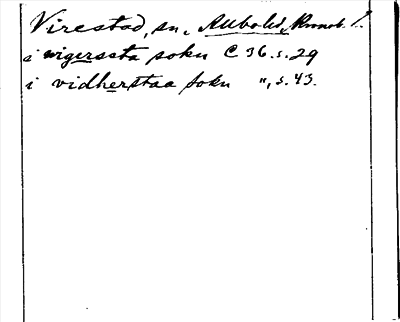 Virestad, sn, Allbo hd, Kronob. l.
i wigerssta sokn C 36. s. 29
i vidherstaa sokn ", s. 43.